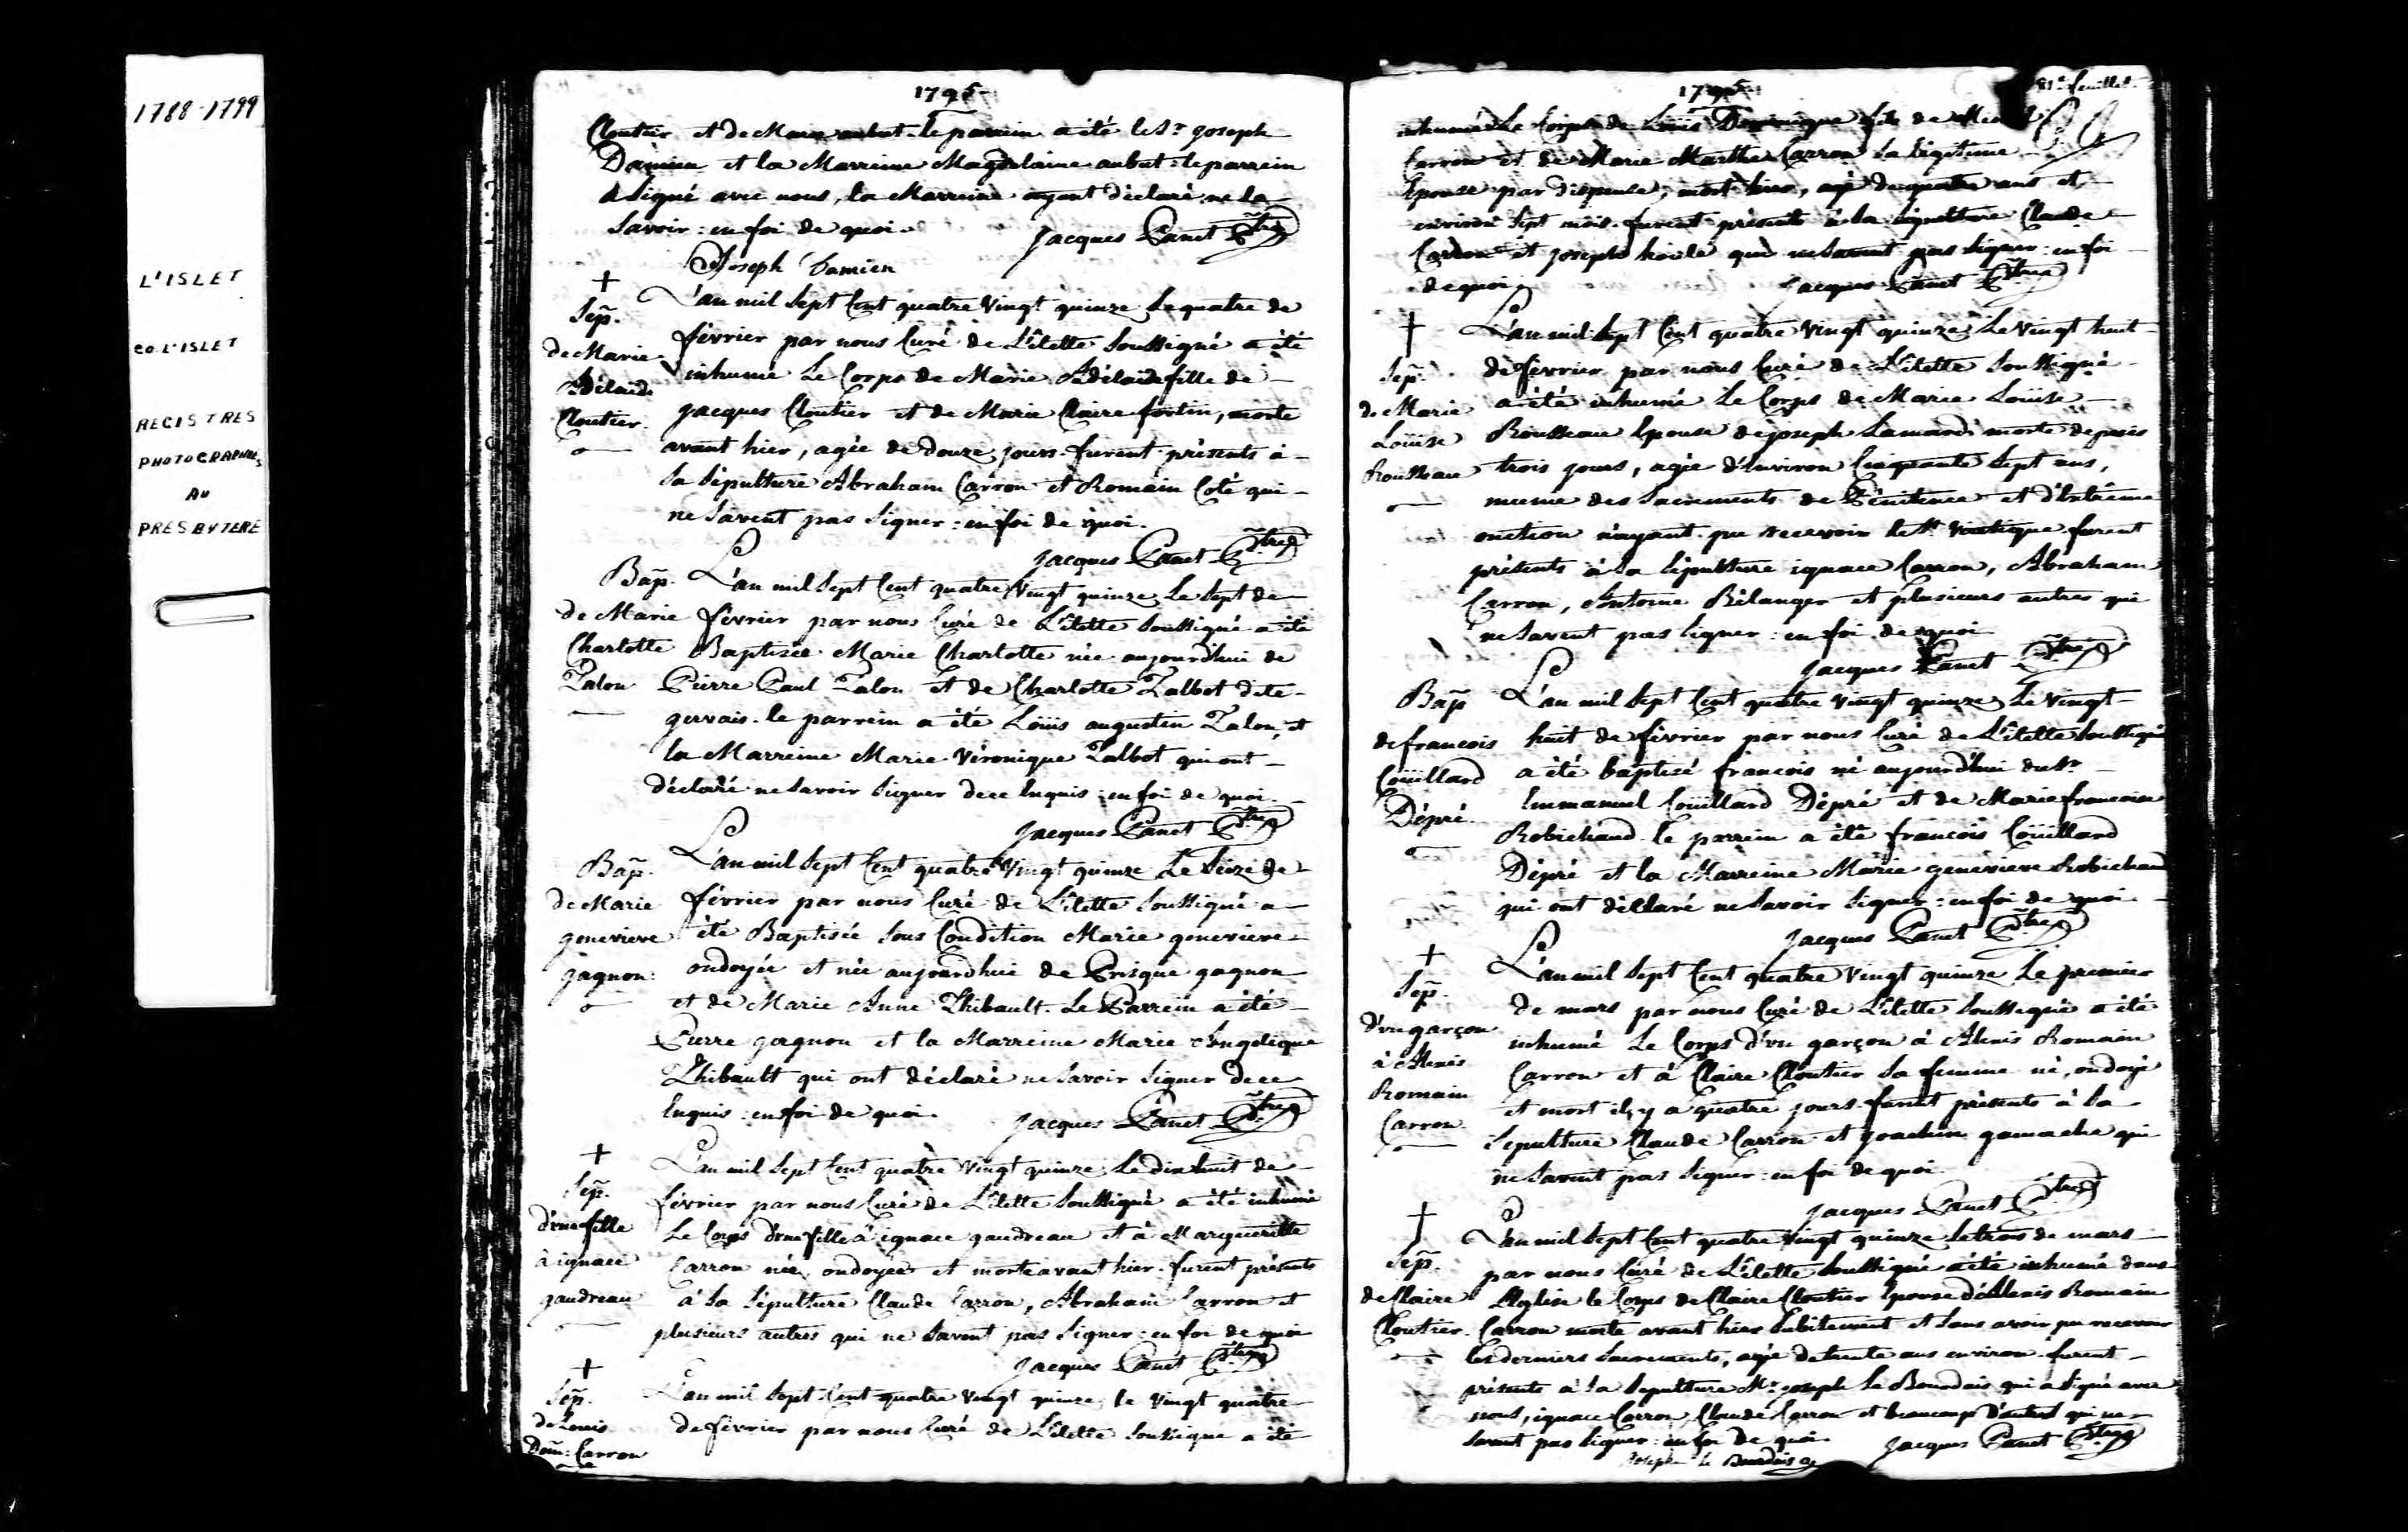 1788-1799
L'ISLET
CO. L'ISLET
REGISTRES
PHOTOGRAPHIÉS
AU
PRESBYTERE
1795
Cloutier et de Marie aubut. le parrein a été le Sr. joseph
Damien et la Marreine Magdelaine aubut: le parrein
a Signé avec nous, la Marreine ayant déclaré ne le
Savoir: en foi de quoi.
jacques Panet Ptre
Joseph Damien
+
Sep.
de Marie
Adélaide
Cloutier.
L'an mil Sept Cent quatre Vingt quinze Le quatre de
février par nous Curé de L'ilette Soussigné a été
inhumé Le Corps de Marie Adélaide fille de
jacques Cloutier et de Marie Claire fortin, morte
avant hier, agée de Douze jours. furent présents à
la Sépulture Abraham Carron et Romain Coté qui
ne Savent pas Signer: en foi de quoi.
jacques Panet Ptre
Bap.
de Marie
Charlotte
Talon
L'an mil Sept Cent quatre Vingt quinze Le Sept de
février par nous Curé de L'ilette Soussigné a été
Baptisée Marie Charlotte née aujourd'hui de
Pierre Paul Talon et de Charlotte Talbot dite
gervais. le parrein a été Loüis augustin Talon, et
la Marreine Marie Véronique Talbot qui ont
déclaré ne Savoir Signer de ce Enquis: en foi de quoi.
jacques Panet Ptre
Bap.
de Marie
genevieve
gagnon.
L'an mil Sept Cent quatre Vingt quinze Le Seize de
février par nous Curé de L'ilette Soussigné a
été Baptisée Sous Condition Marie genevieve
ondoyée et née aujourd'hui de Prisque gagnon
et de Marie Anne Thibault. Le Parrein a été
Pierre gagnon et la Marreine Marie Angelique
Thibault qui ont déclaré ne Savoir Signer de ce
Enquis: en foi de quoi.
jacques Panet Ptre
+
Sep.
d'une fille
à ignace
gaudreau
L'an mil Sept Cent quatre Vingt quinze Le dix huit de
février par nous Curé de L'ilette Soussigné a été inhumé
Le Corps d'une fille à ignace gaudreau et à Margueritte
Carron née, ondoyée et morte avant hier. furent présents
à la Sépulture Claude Carron, Abraham Carron et
plusieurs autres qui ne Savent pas Signer: en foi de quoi
jacques Panet Ptre
+
Sep.
de Louis
Dom: Carron
L'an mil Sept Cent quatre Vingt quinze le Vingt quatre
de février par nous Curé de L'ilette Soussigné a été
1795
81e feuillet
inhumé Le Corps de Loüis Dominique fils de
Carron et de Marie Marthe Carron Sa légitime
Epouse par dispense, mort hier, agé de quatre ans et
environ Sept mois. furent présents à la Sépulture Claude
Carron et joseph qui ne Savent pas Signer: en foi
de quoi.
jacques Panet Ptre
+
Sep.
de Marie
Loüise
Rousseau
L'an mil Sept Cent quatre Vingt quinze Le Vingt huit
de février par nous Curé de L'ilette Soussigné
a été inhumé Le Corps de Marie Loüise
Rousseau Epouse de joseph Lamard morte depuis
trois jours, agée d'Environ Cinquante Sept ans,
munie des Sacrements de Pénitence et d'Extrême
onction n'ayant pu recevoir le St. Viatique. furent
présents à la Sépulture ignace Carron, Abraham
Carron, Antoine Bélanger et plusieurs autres qui
ne Savent pas Signer: en foi de quoi
jacques Panet Ptre
Bap
de francois
Coüillard
Dépré.
L'an mil Sept Cent quatre Vingt quinze Le Vingt
huit de février par nous Curé de L'ilette Soussigné
a été baptisé francois né aujourd'hui du Sr.
Emmanuel Coüillard Dépré et de Marie francoise
Robichaud. le parrein a été francois Coüillard
Dépré et la Marreine Marie genevieve Robichaud
qui ont déclaré ne Savoir Signer: en foi de quoi.
jacques Panet Ptre
+
Sep.
d'un garçon
à Alexis
Romain
Carron
L'an mil Sept Cent quatre Vingt quinze Le premier
de mars par nous Curé de L'ilette Soussigné a été
inhumé Le Corps d'un garçon à Alexis Romain
Carron et à Claire Cloutier Sa femme né, ondoyé
et mort il y a quatre jours. furent présents à la
Sépulture Claude Carron et joachim gamache qui
ne Savent pas Signer: en foi de quoi
jacques Panet Ptre
+
Sep.
de Claire
Cloutier.
L'an mil Sept Cent quatre Vingt quinze Le trois de mars
par nous Curé de L'ilette Soussigné a été inhumé dans
L'Eglise le Corps de Claire Cloutier Epouse d'Alexis Romain
Carron morte avant hier Subitement et Sans avoir pu recevoir
les derniers Sacrements, agée de trente ans environ. furent
présents à la Sepulture Mr. joseph Le Bourdais qui a Signé avec
nous, ignace Carron, Claude Carron et beaucoup d'autres qui ne
Savent pas Signer: en foi de quoi.
jacques Panet Ptre
Joseph le Bourdais